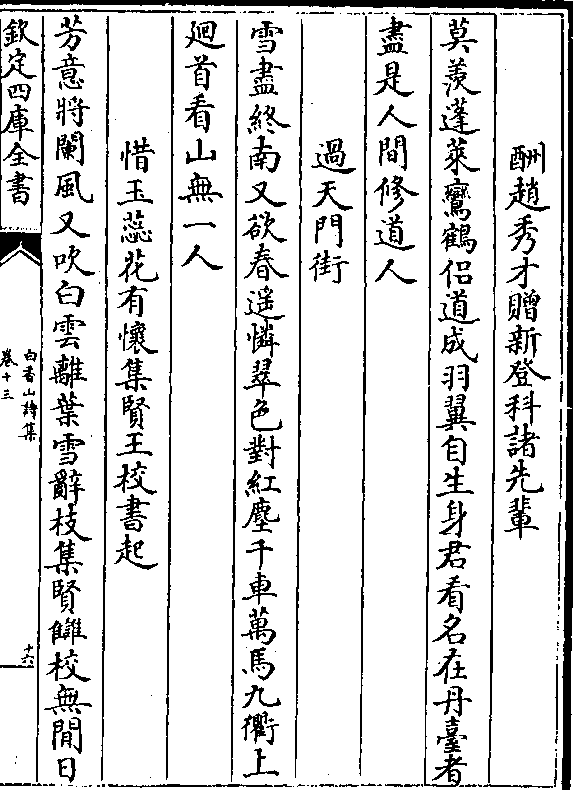 酬趙秀才贈新登科諸先輩
莫羨蓬萊鸞鶴侣道成羽翼自生身君看名在丹臺者
盡是人間修道人
過天門街
雪盡終南又欲春遥憐翠色對紅塵千車萬馬九衢上
廻首看山無一人
惜玉蕊花有懷集賢王校書起
芳意將闌風又吹白雲離葉雪辭枝集賢讎校無閒日
欽定四庫全書
白香山詩集
卷十三
十六